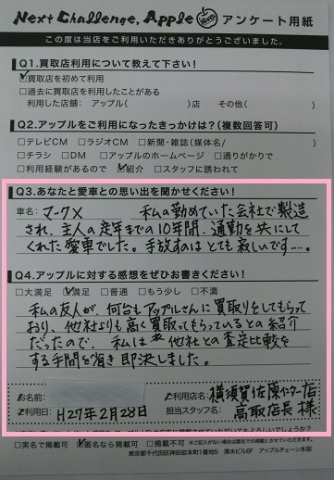 Next Challenge, Apple アンケート用紙
この度は当店をご利用いただきありがとうございました。
Q1.買取店利用について教えて下さい!
☑買取店を初めて利用
□過去に買取店を利用したことがある
利用した店舗: アップル( )店 その他( )
Q2.アップルをご利用になったきっかけは?(複数回答可)
□テレビCM □ラジオCM □新聞・雑誌(媒体名/ )
□チラシ □DM □アップルのホームページ □通りがかりで
□利用経験があるので ☑紹介 □スタッフに誘われて
Q3.あなたと愛車との思い出を聞かせください!
車名: マークX 私の勤めていた会社で製造
され、主人の定年までの10年間、通勤を共にして
くれた愛車でした。手放すのはとても寂しいです…。
Q4.アップルに対する感想をぜひお書きください!
□大満足 ☑満足 □普通 □もう少し □不満
私の友人が、何台もアップルさんに買取りをしてもらって
おり、他社よりも高く買取ってもらっているとの紹介
だったので、私は 他社との査定比較を
する手間を省き即決しました。
お名前
ご利用日: H27年2月28日
ご利用店名: 横須賀佐原インター店
担当スタッフ名: 高取店長 様
□実名で掲載可 ☑匿名なら掲載可 □掲載不可
東京都千代田区神田岩本町1番地5 清水ビル6F アップルチェーン本部